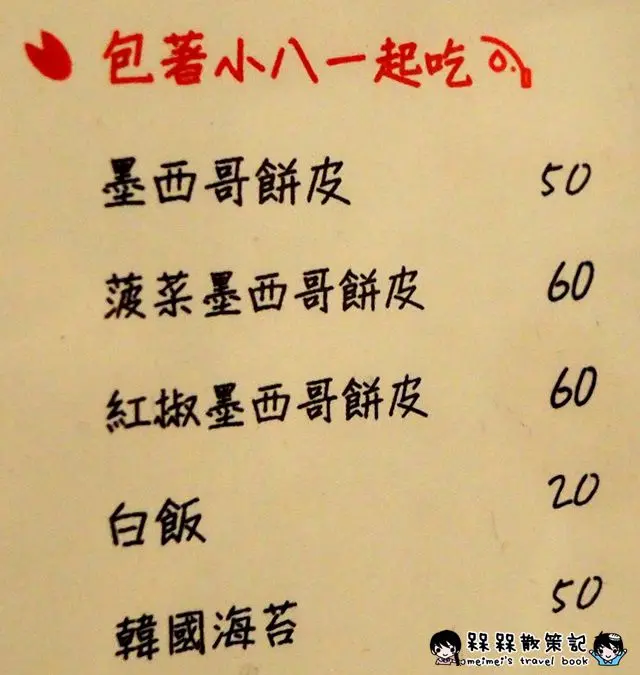 包著小八一起吃
墨西哥餅皮 50
菠菜墨西哥餅皮 60
紅椒墨西哥餅皮 60
白飯 20
韓國海苔 50
槑槑散策記
meimei's travel book